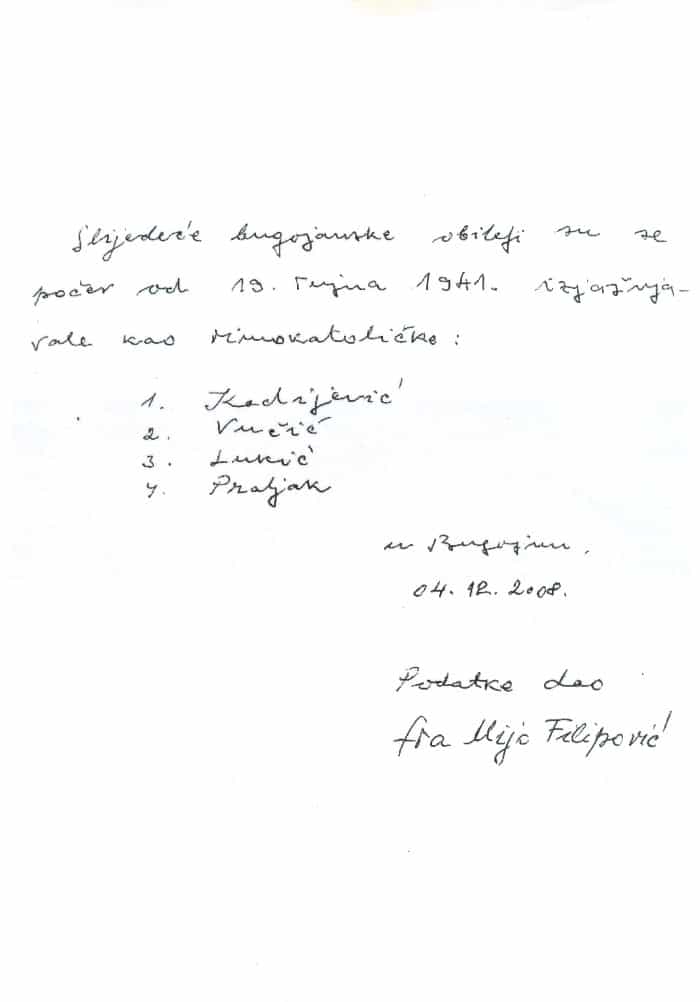 Slijedeće bugojanske obitelji su se
počev od 19. rujna 1941. izjašnja-
vale kao rimokatoličke:
1. Kadrijević
2. Vučić
3. Lukić
4. Praljak
u Bugojnu,
04. 12. 2008.
Podatke dao
fra Mijo Filipović